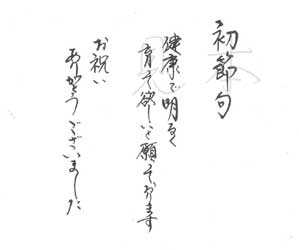 初節句
健康で明るく
育て欲しいと願っております
お祝い
ありがとうございました